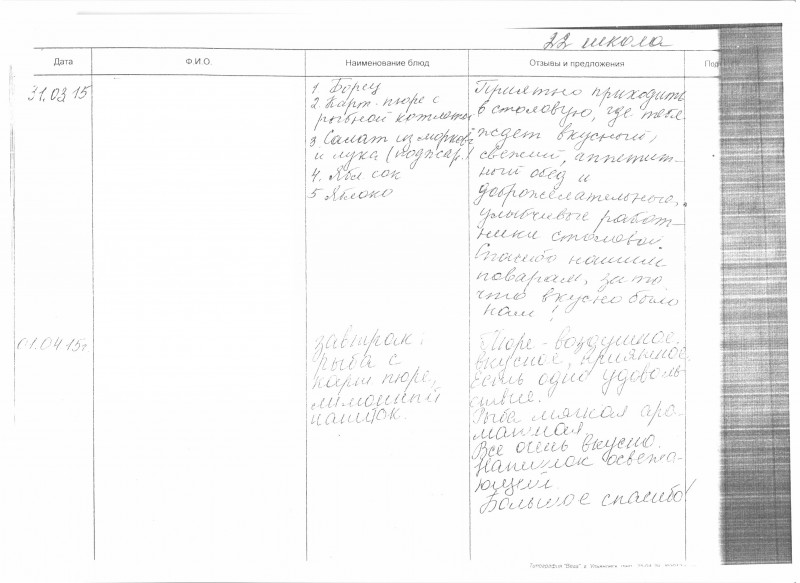 22 школа
Дата
Ф.И.О.
Наименование блюд
Отзывы и предложения
31.03.15
1 Борщ
2. Карт. пюре с
рыбной котлетой
3. Салат из моркови
и лука (поджар.)
4. Ябл сок
5 Яблоко
Приятно приходить
в столовую, где тебя
ждет вкусный,
свежий, аппетит-
ный обед и
доброжелательного,
улыбчивые работ-
ники столовой.
Спасибо нашим
поварам, за то
что вкусно было
нам!
01.04.15г
завтрак:
рыба с
карт пюре,
лимонный
напиток.
Пюре - воздушное,
вкусное, приятное.
есть одно удоволь-
ствие.
Рыба мягкая аро-
матная.
Всё очень вкусно.
Напиток освежа-
ющий
Большое спасибо!